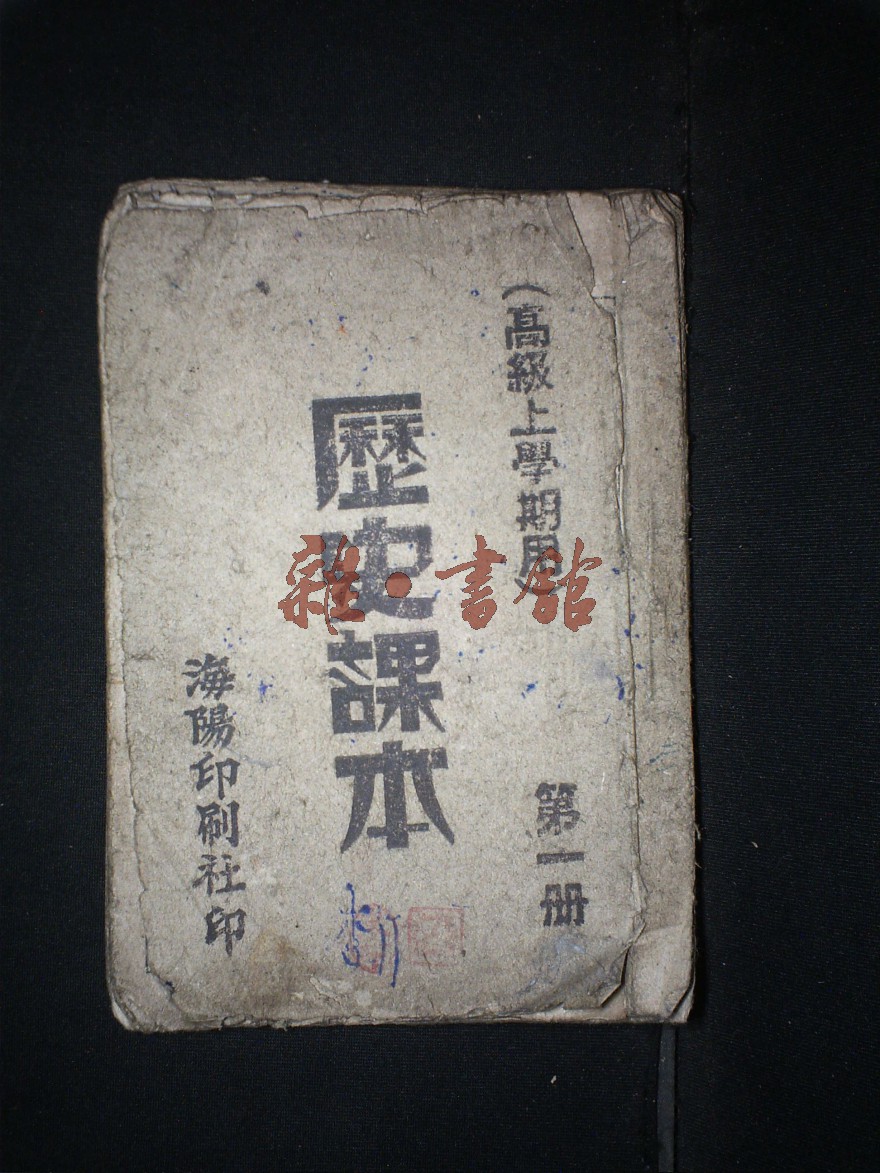 （高級上學期用）
第一册
歷史課本
海陽印刷社印
雜·書館